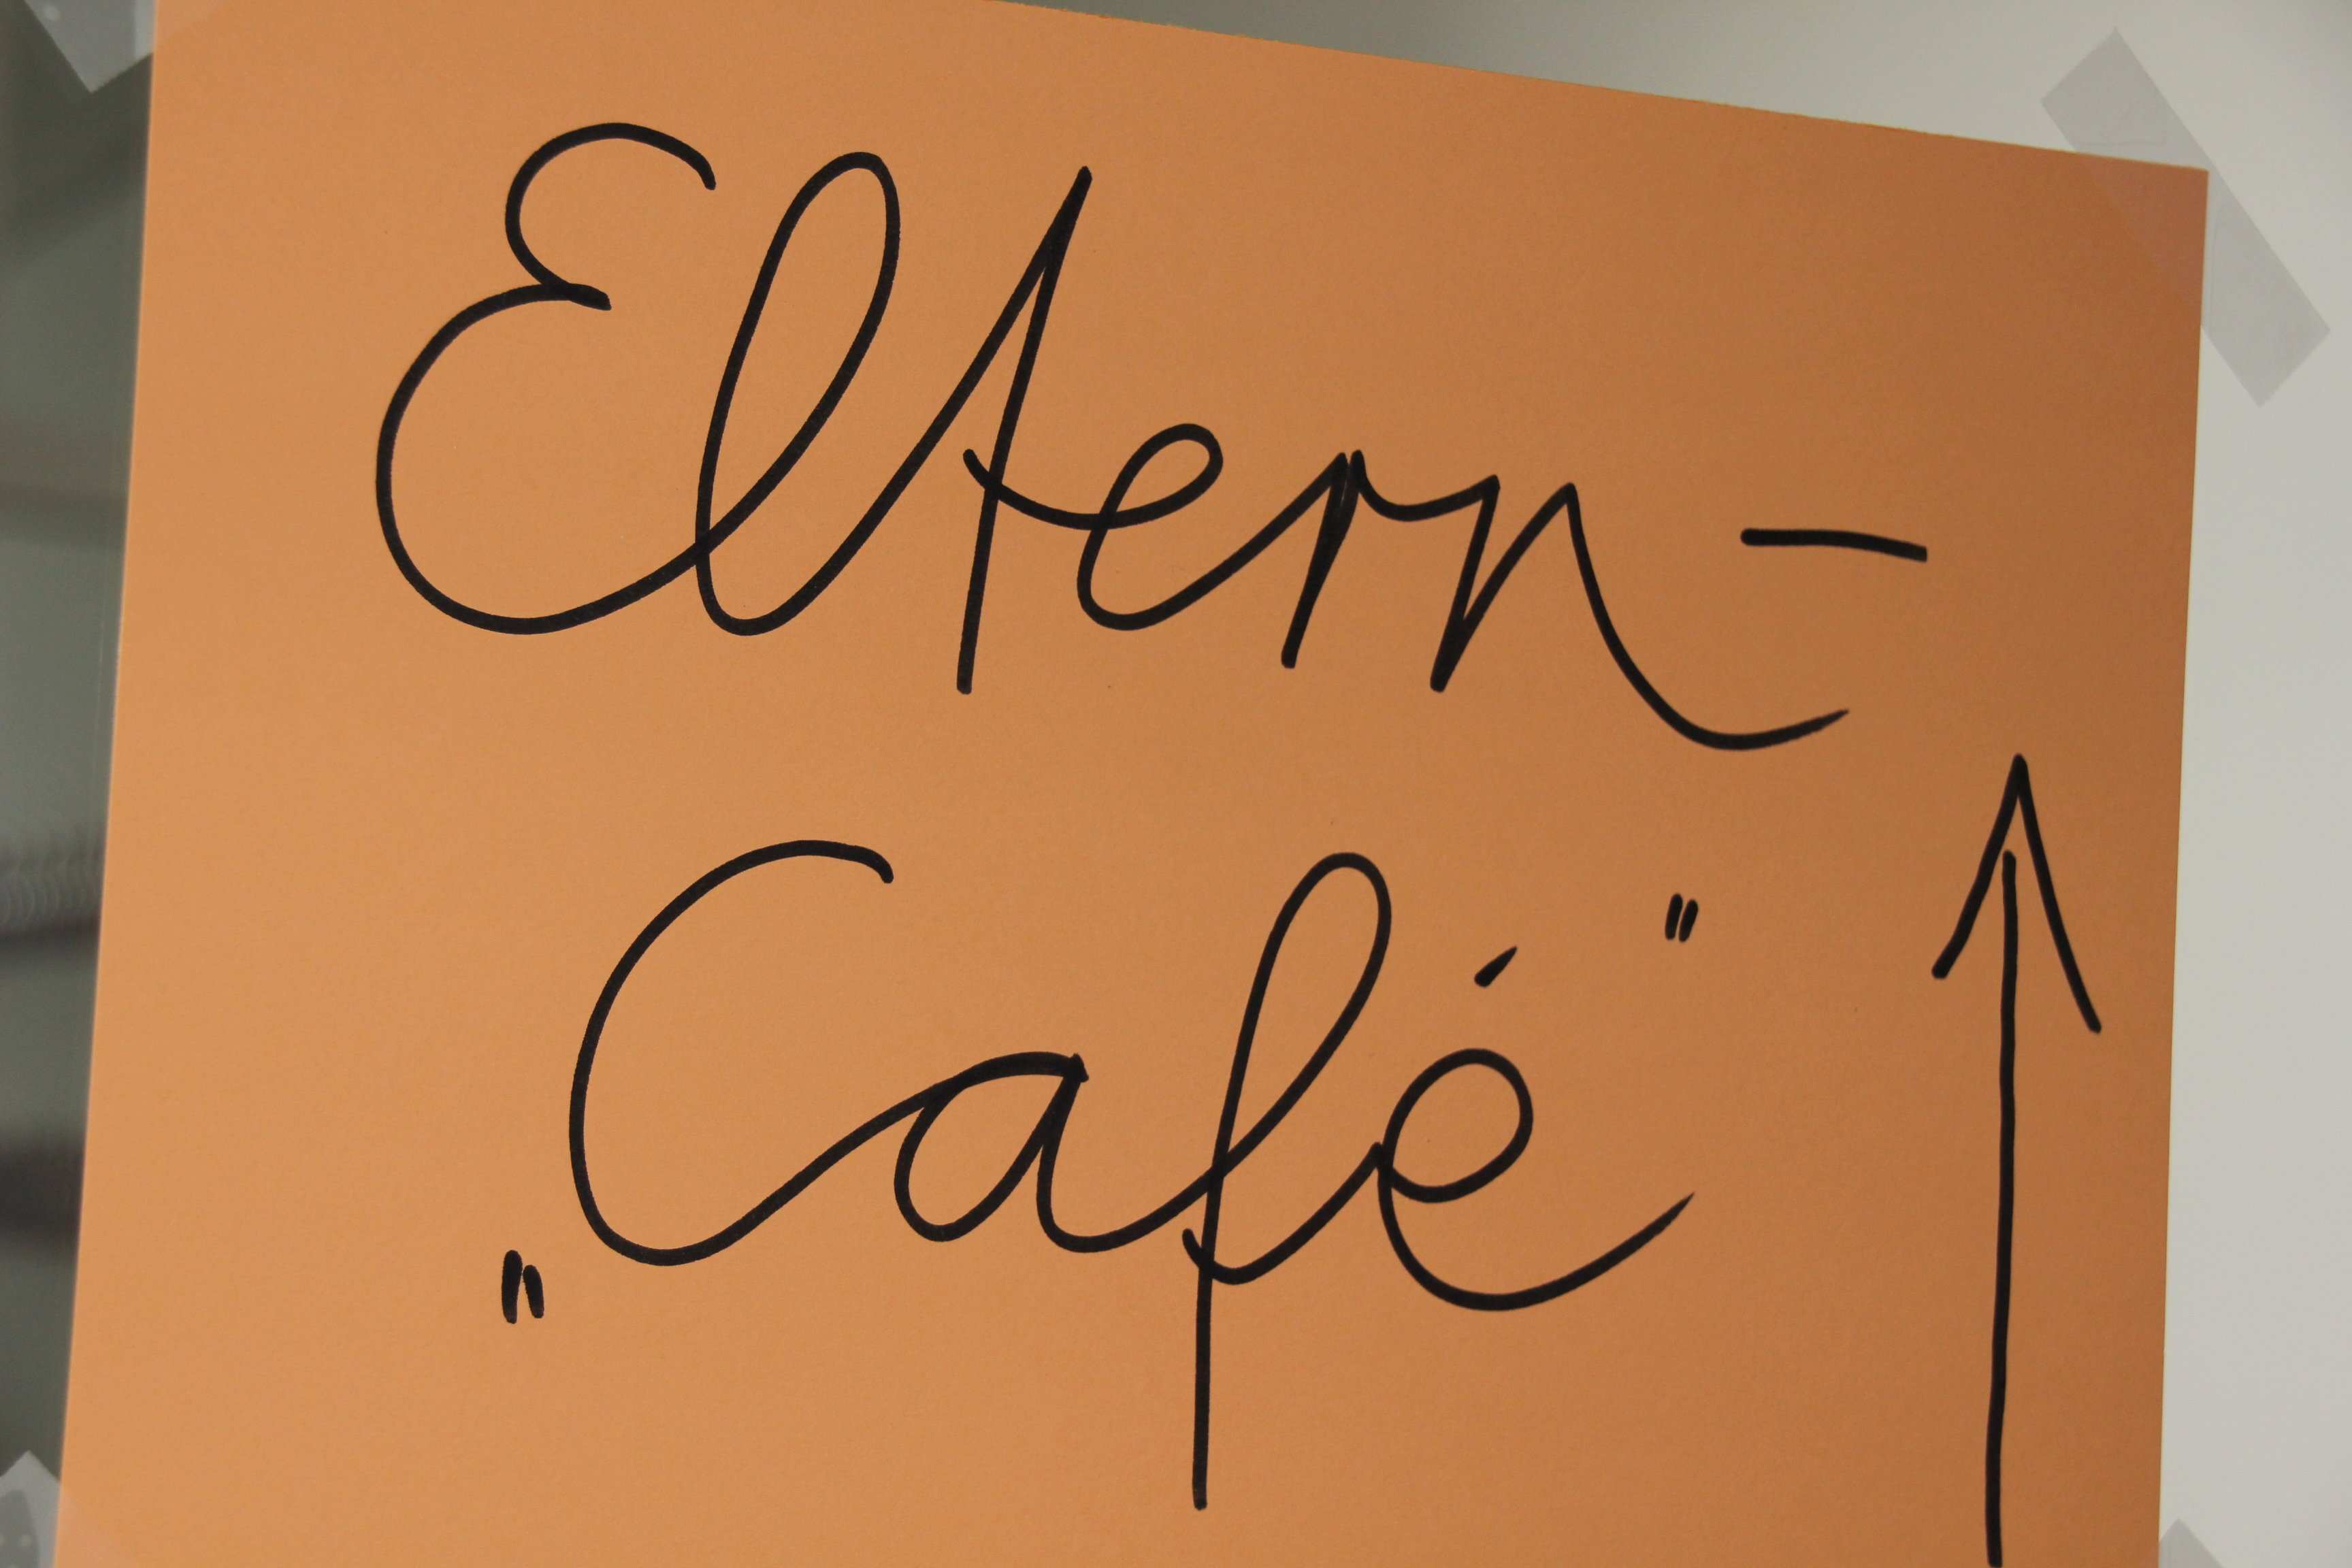 Eltern-
„Café"